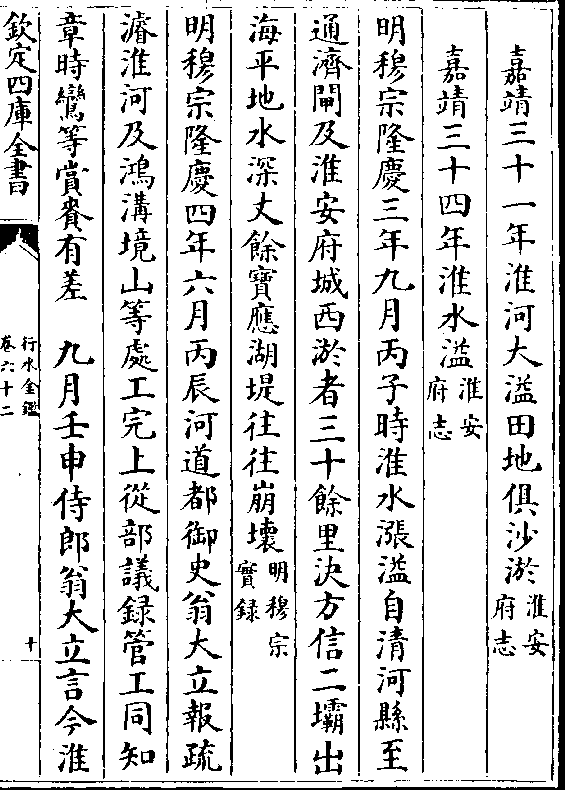 嘉靖三十一年淮河大溢田地俱沙淤淮安府志
嘉靖三十四年淮水溢淮安府志
明穆宗隆慶三年九月丙子時淮水漲溢自清河縣至
通濟閘及淮安府城西淤者三十餘里決方信二壩出
海平地水深丈餘寶應湖堤往往崩壞明穆宗實録
明穆宗隆慶四年六月丙辰河道都御史翁大立報疏
濬淮河及鴻溝境山等處工完上從部議録管工同知
章時鸞等賞賚有差 九月壬申侍郎翁大立言今淮
欽定四庫全書
行水金鑑
卷六十二
十